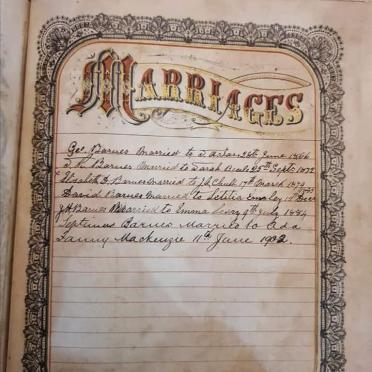 MARRIAGES
Geo. Barnes Married to 26th June 1866
Barnes Married to Sarah 25th Septr 1872
Elizabeth Barnes Married to Chubb 17th March 1879
David Barnes Married to Letitia
J H Barnes Married to Emma 9th July 1884
Septimus Barnes Married to Ada
Fanny Mackenzie 11th June 1902.